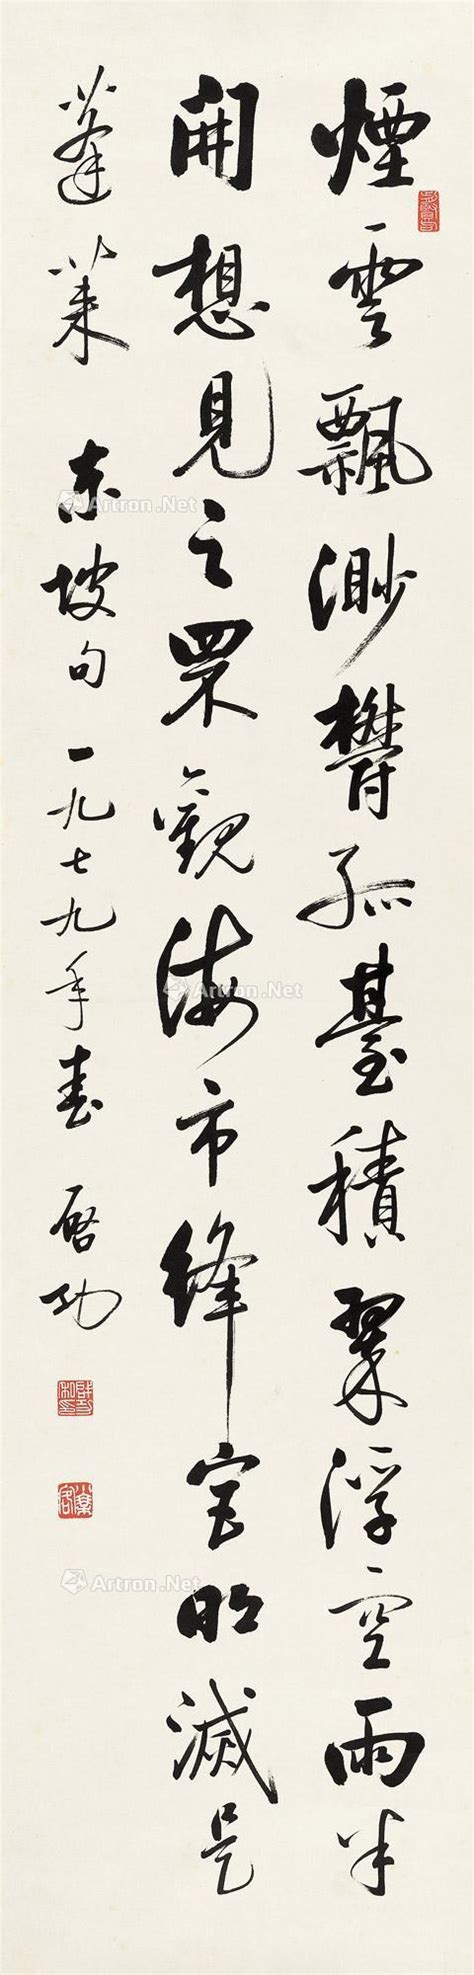 煙雲飄渺欝孤臺積翠浮空雨半
開想見之罘觀海市絳宮明滅是
蓬萊 東坡句 一九七九年春 啓功
Artron.Net
Artron.Net
Artron.Net